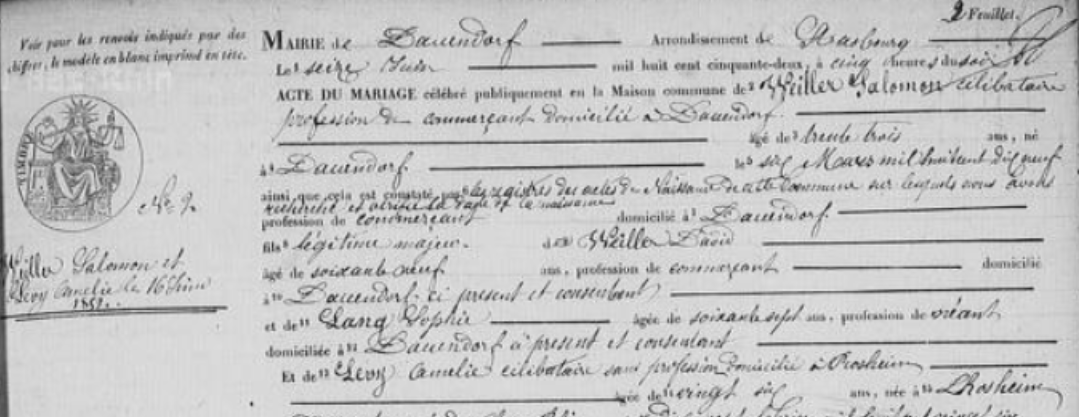 2 Feuillet.
Voir pour les renvois indiqués par des
chiffres, le modèle en blanc imprimé en tête.
MAIRIE de Dauendorf Arrondissement de Strasbourg
Le seize Juin mil huit cent cinquante-deux, à cinq heures du soir
ACTE DU MARIAGE célébré publiquement en la Maison commune de Weiller Salomon célibataire
profession de commerçant domicilié à Dauendorf.
âgé de trente trois ans, né
à Dauendorf le six Mars mil huit cent dix neuf
ainsi que cela est constaté par les registres des actes de Naissance de cette Commune sur lesquels nous avons
recherché et vérifié la date de la naissance
profession de commerçant domicilié à Dauendorf.
fils légitime majeur. de Weiller David
âgé de soixante neuf ans, profession de commerçant domicilié
à Dauendorf ci présent et consentant
et de Lang Sophie âgée de soixante sept ans, profession de néant
domiciliée à Dauendorf à présent et consentant
Et de Levy Amelie célibataire sans profession domicilié à Rosheim
âgée de vingt six ans, née à Rosheim
TIMBRE
No. 9.
Weiller Salomon et
Levy Amelie le 16 Juin
1852.